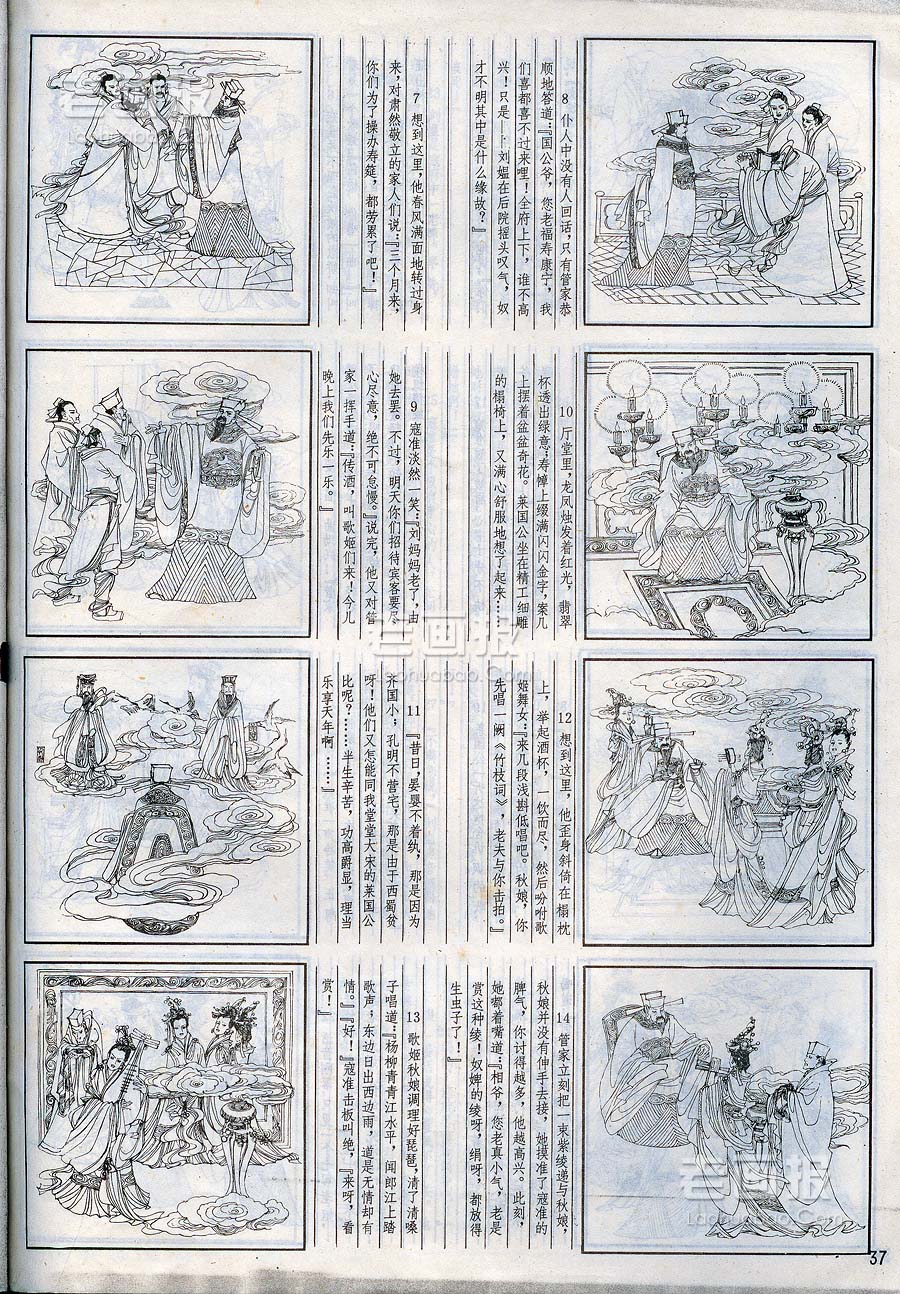 7 想到这里，他春风满面地转过身
来，对肃然敬立的家人们说：『三个月来，
你们为了操办寿筵，都劳累了吧！』
8 仆人中没有人回话，只有管家恭
顺地答道：『国公爷，您老福寿康宁，我
们喜都喜不过来哩！全府上下，谁不高
兴！只是——刘媪在后院摇头叹气，奴
才不明其中是什么缘故？』
9 寇准淡然一笑：『刘妈妈老了，由
她去罢。不过，明天你们招待宾客要尽
心尽意，绝不可怠慢。』说完，他又对管
家一挥手道：『传酒，叫歌姬们来！今儿
晚上我们先乐一乐。』
10 厅堂里，龙凤烛发着红光，翡翠
杯透出绿意；寿幛上缀满闪闪金字，案几
上摆着盆盆奇花。莱国公坐在精工细雕
的榻椅上，又满心舒服地想了起来……
11 『昔日，晏婴不着纨，那是因为
齐国小；孔明不营宅，那是由于西蜀贫
呀！他们又怎能同我堂堂大宋的莱国公
比呢？……半生辛苦，功高爵显，理当
乐享天年啊……』
12 想到这里，他歪身斜倚在榻枕
上，举起酒杯，一饮而尽，然后吩咐歌
姬舞女：『来几段浅斟低唱吧。秋娘，你
先唱一阙《竹枝词》，老夫与你击拍。』
13 歌姬秋娘调理好琵琶，清了清嗓
子唱道：『杨柳青青江水平，闻郎江上踏
歌声；东边日出西边雨，道是无情却有
情。』『好！』寇准击板叫绝，『来呀，看
赏！』
14 管家立刻把一束紫绫递与秋娘，
秋娘并没有伸手去接，她摸准了寇准的
脾气，你讨得越多，他越高兴。此刻，
她嘟着嘴道：『相爷，您老真小气，老是
赏这种绫！奴婢的绫呀，绢呀，都放得
生虫子了！』
37
老画报
Laohuabao.Com
老画报
老画报
Laohuabao.Com